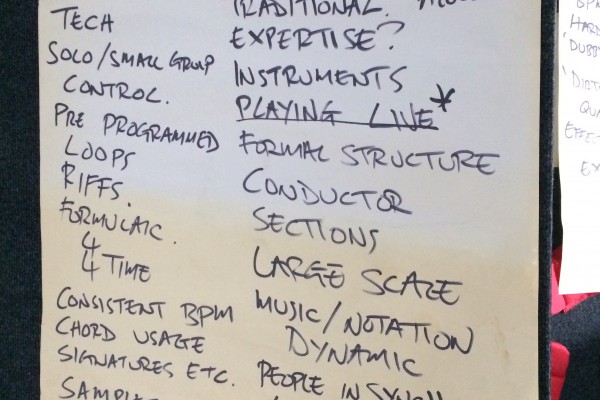 TECH
SOLO/SMALL GROUP
CONTROL.
PRE PROGRAMMED
LOOPS
RIFFS.
FORMULAIC.
4
4 TIME
CONSISTENT BPM
CHORD USAGE
SIGNATURES ETC.
TRADITIONAL.
EXPERTISE?
INSTRUMENTS
PLAYING LIVE*
FORMAL STRUCTURE
CONDUCTOR
SECTIONS
LARGE SCALE
MUSIC/NOTATION
DYNAMIC
PEOPLE IN
BPM